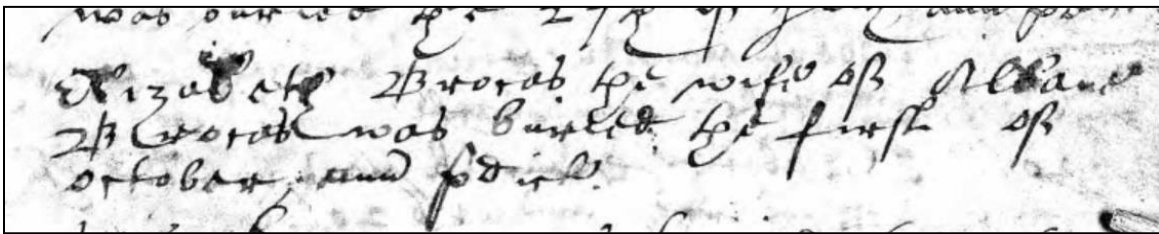 was buried the 27th of July anno
Elizabeth Brocas the wife of Albane
Brocas was buried the first of
october, anno pdict.